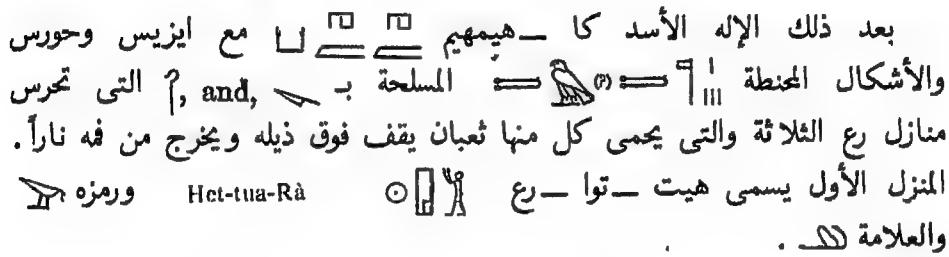 بعد ذلك الإله الأسد كا – هيمهيم مع ايزيس وحورس
والأشكال المحنطة (?) المسلحة بـ , and, التى تحرس
منازل رع الثلاثة والتى يحمى كل منها ثعبان يقف فوق ذيله ويخرج من فمه ناراً .
المنزل الأول يسمى هيت – توا – رع Het-tua-Rà ورمزه
والعلامة .